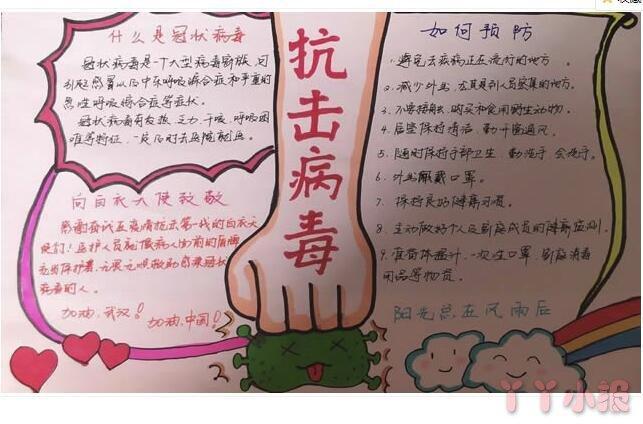 什么是冠状病毒
冠状病毒是一个大型病毒家族,可
引起感冒以及中东呼吸综合征和严重的
急性呼吸综合征等症状。
冠状病毒有发热、乏力、干咳、呼吸困
难等特征,一旦及时去医院就医。
向白衣天使致敬
感谢奋战在疫情抗击第一线的白衣天
使们!医护人员就像病人面前的盾牌
病毒的人。
加油,武汉!
加油,中国!
抗击病毒
如何预防
1.避免去疾病正在流行的地方
2.减少外出,尤其是到人员密集的地方。
3.不要接触、购买和食用野生动物。
4.居室保持清洁,勤开窗通风。
5.随时保持手部卫生,勤洗手、会洗手。
6.外出佩戴口罩。
7.保持良好健康习惯。
8.主动做好个人及家庭成员的健康监测。
9.准备体温计、一次性口罩、家庭消毒
用品等物资。
阳光总在风雨后
丫丫小报